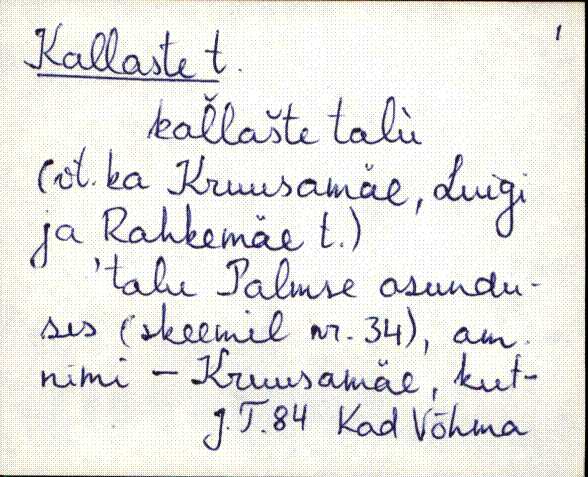 1
Kallaste t.
kaľlašte talù
(vt. ka Kruusamäe, Luigi
ja Rahkemäe t.)
'talu Palmse asundu-
ses (skeemil nr. 34), am.
nimi - Kruusamäe, kut-
J.T.84 Kad Võhma